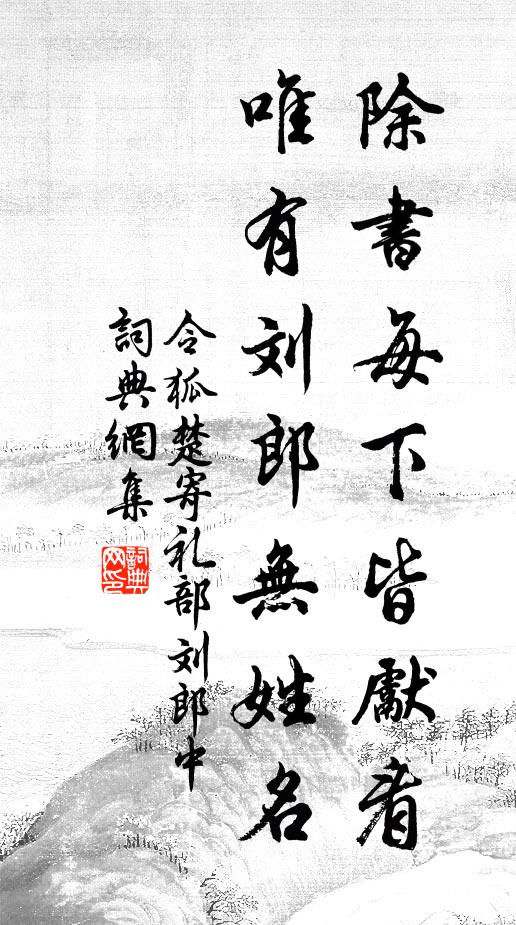 除書每下皆獻看
唯有刘郎無姓名
令狐楚寄礼部刘郎中
詞典網集
詞典
网印